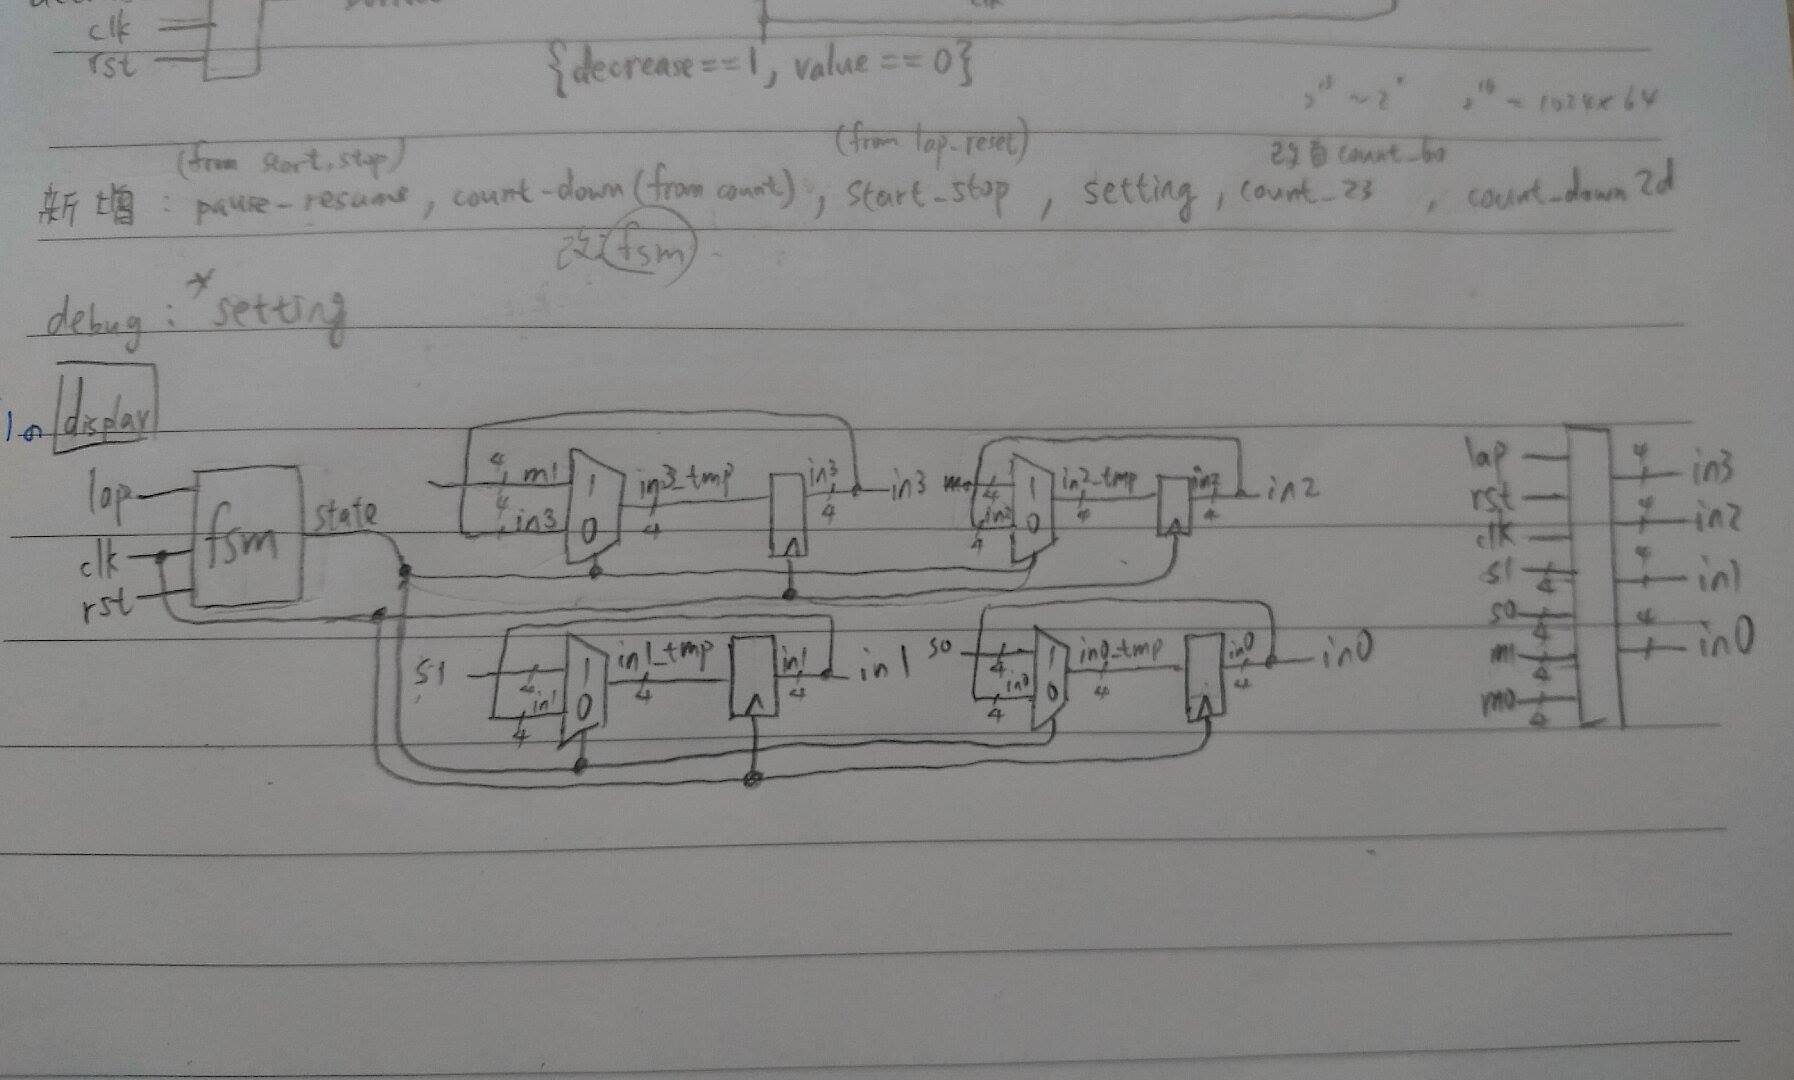 clk
rst
{decrease==1, value==0}
(from start, stop)
(from lap-reset)
新增 : pause-resume, count-down (from count), start_stop, setting, count_23, count_down 2d
fsm
debug : *setting
1. display
lap
clk
rst
fsm
state
4 m1
4 in3
1
0
in3_tmp
4
in3
4
in3
m0
4
in2
4
1
0
in2_tmp
4
in2
4
in2
s1
4
in1
4
1
0
in1_tmp
4
in1
4
in1
s0
4
in0
4
1
0
in0_tmp
4
in0
4
in0
lap
rst
clk
s1 4
s0 4
m1 4
m0 4
4 in3
4 in2
4 in1
4 in0